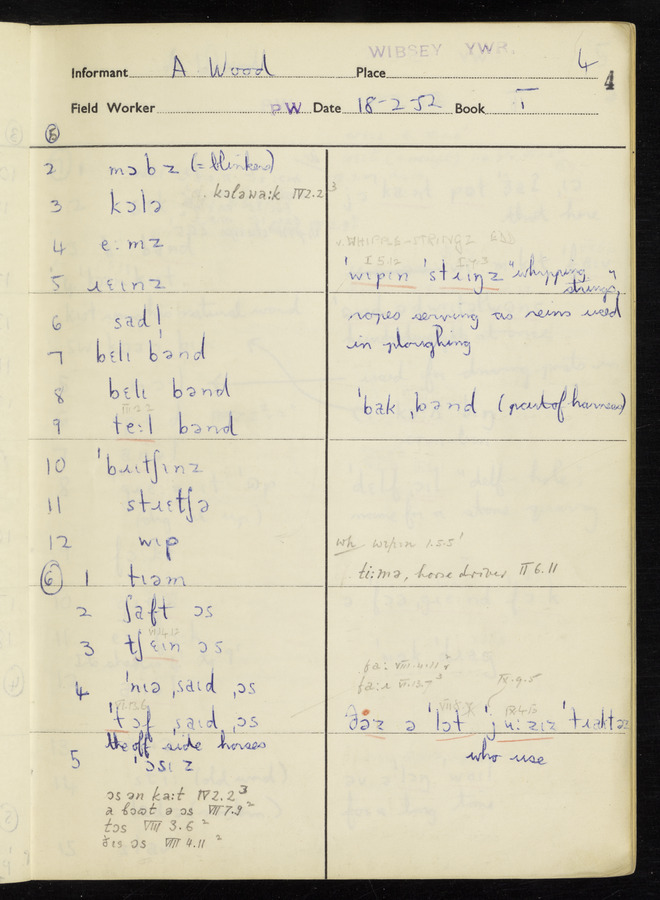 WIBSEY YWR.
Informant A Wood Place 4 4
Field Worker P.W Date 18-2-52 Book I
⑤
2 mɔbz (= blinkers)
3 kɔlə kɔləwa:k IV2.2³
4 e:mz
5 ɹɛinz
6 sadl
7 bɛlɪ band
8 bɛlɪ bənd
9 te:l bənd
10 'bɹɪtʃɪnz
11 stɹɛtʃə
12 wɪp
⑥ 1 tɪəm
2 ʃaft ɔs
3 tʃɛɪn ɔs
4 'nɪə ˌsaɪd ˌɔs
't ɔf ˌsaɪd ˌɔs
the off side horses
5 'ɔsɪz
ɔs ən ka:t IV2.2³
tɔs VIII 3.6²
ɔs VIII 4.11²
v. WHIPPLE-STRINGZ EDD
I 5.12 I 4.3
'wɪpɪn 'stɹɪŋz "whipping strings"
ropes serving as reins used
in ploughing
'bak ˌbənd (part of harness)
wh wɪpɪn 1.5.5'
ti:mə, horse driver II 6.11
fa: VIII.4.11²
IX.9.5
ðəz ə 'lɔt 'ju:zɪz 'tɹaktəz
who use